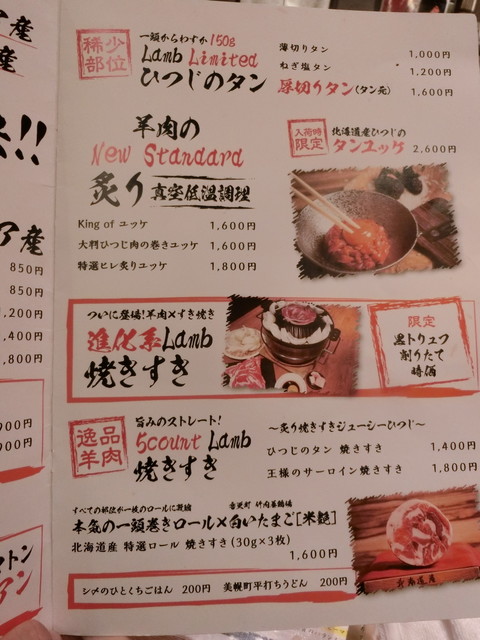 産
産
!!
産
850円
850円
,200円
,400円
,800円
900円
900円
トン
稀少
部位
一頭からわずか150g
Lamb Limited
ひつじのタン
薄切りタン 1,000円
ねぎ塩タン 1,200円
厚切りタン(タン元) 1,600円
羊肉の
New Standard
炙り 真空低温調理
King of ユッケ 1,600円
大判ひつじ肉の巻きユッケ 1,600円
特選ヒレ炙りユッケ 1,800円
入荷時
限定
北海道産ひつじの
タンユッケ 2,600円
ついに登場!羊肉×すき焼き
進化系Lamb
焼きすき
限定
黒トリュフ
削りたて
時価
逸品
羊肉
旨みのストレート!
5count Lamb
焼きすき
〜炙り焼きすきジューシーひつじ〜
ひつじのタン 焼きすき 1,400円
王様のサーロイン焼きすき 1,800円
すべての部位が一枚のロールに凝縮
本気の一頭巻きロール×白いたまご[米艶]
北海道産 特選ロール 焼きすき(30g×3枚)
1,600円
北海道産
シメのひとくちごはん 200円 美幌町平打ちうどん 200円